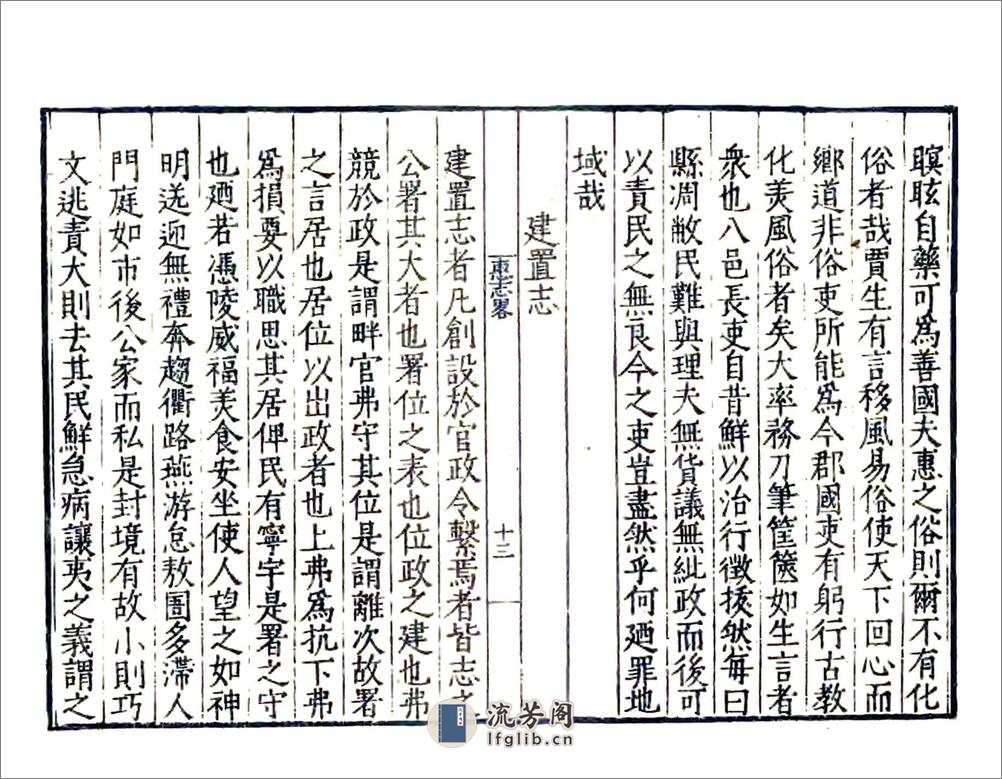 瞑眩自藥可為善國夫惠之俗則爾不有化
俗者哉賈生有言移風易俗使天下回心而
鄉道非俗吏所能為今郡國吏有躬行古教
化美風俗者矣大率務刀筆筐篋如生言者
衆也八邑長吏自昔鮮以治行徵拔然每曰
縣凋敝民難與理夫無貨議無紕政而後可
以責民之無良今之吏豈盡然乎何廼罪地
域哉
建置志
惠志畧
十三
建置志者凡創設於官政令繫焉者皆志之
公署其大者也署位之表也位政之建也弗
競於政是謂畔官弗守其位是謂離次故署
之言居也居位以出政者也上弗為抗下弗
為損要以職思其居俾民有寧宇是署之守
也廼若憑陵威福美食安坐使人望之如神
明送迎無禮奔趨衢路燕游怠敖圄多滯人
門庭如市後公家而私是封境有故小則巧
文逃責大則去其民鮮急病讓夷之義謂之
流芳阁
lfglib.cn